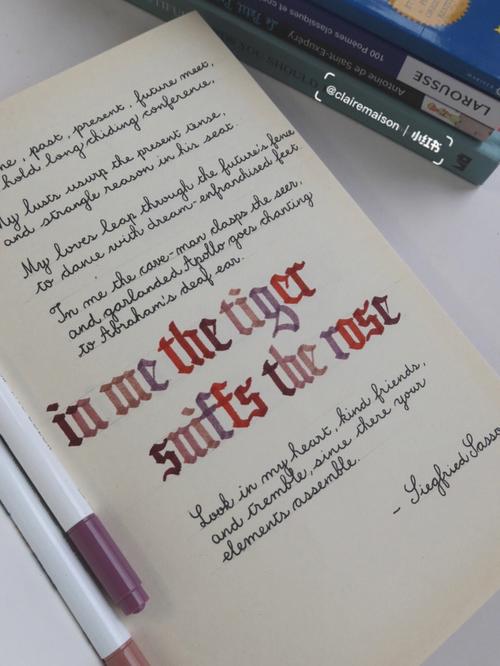 , past, present, future meet,
hold long chiding conference,
My lusts usurp the present tense,
and strangle reason in his seat.
My loves leap through the future's fence
to dance with dream-enfranchised feet.
In me the cave-man clasps the seer,
and garlanded Apollo goes chanting
to Abraham's deaf ear.
in me the tiger
sniffs the rose
Look in my heart, kind friends,
and tremble, since there your
elements assemble.
- Siegfried Sasso
@clairemaison | 小红书
LAROUSSE
100 Poèmes classiques et
Antoine de Saint-Exupéry
Le Petit